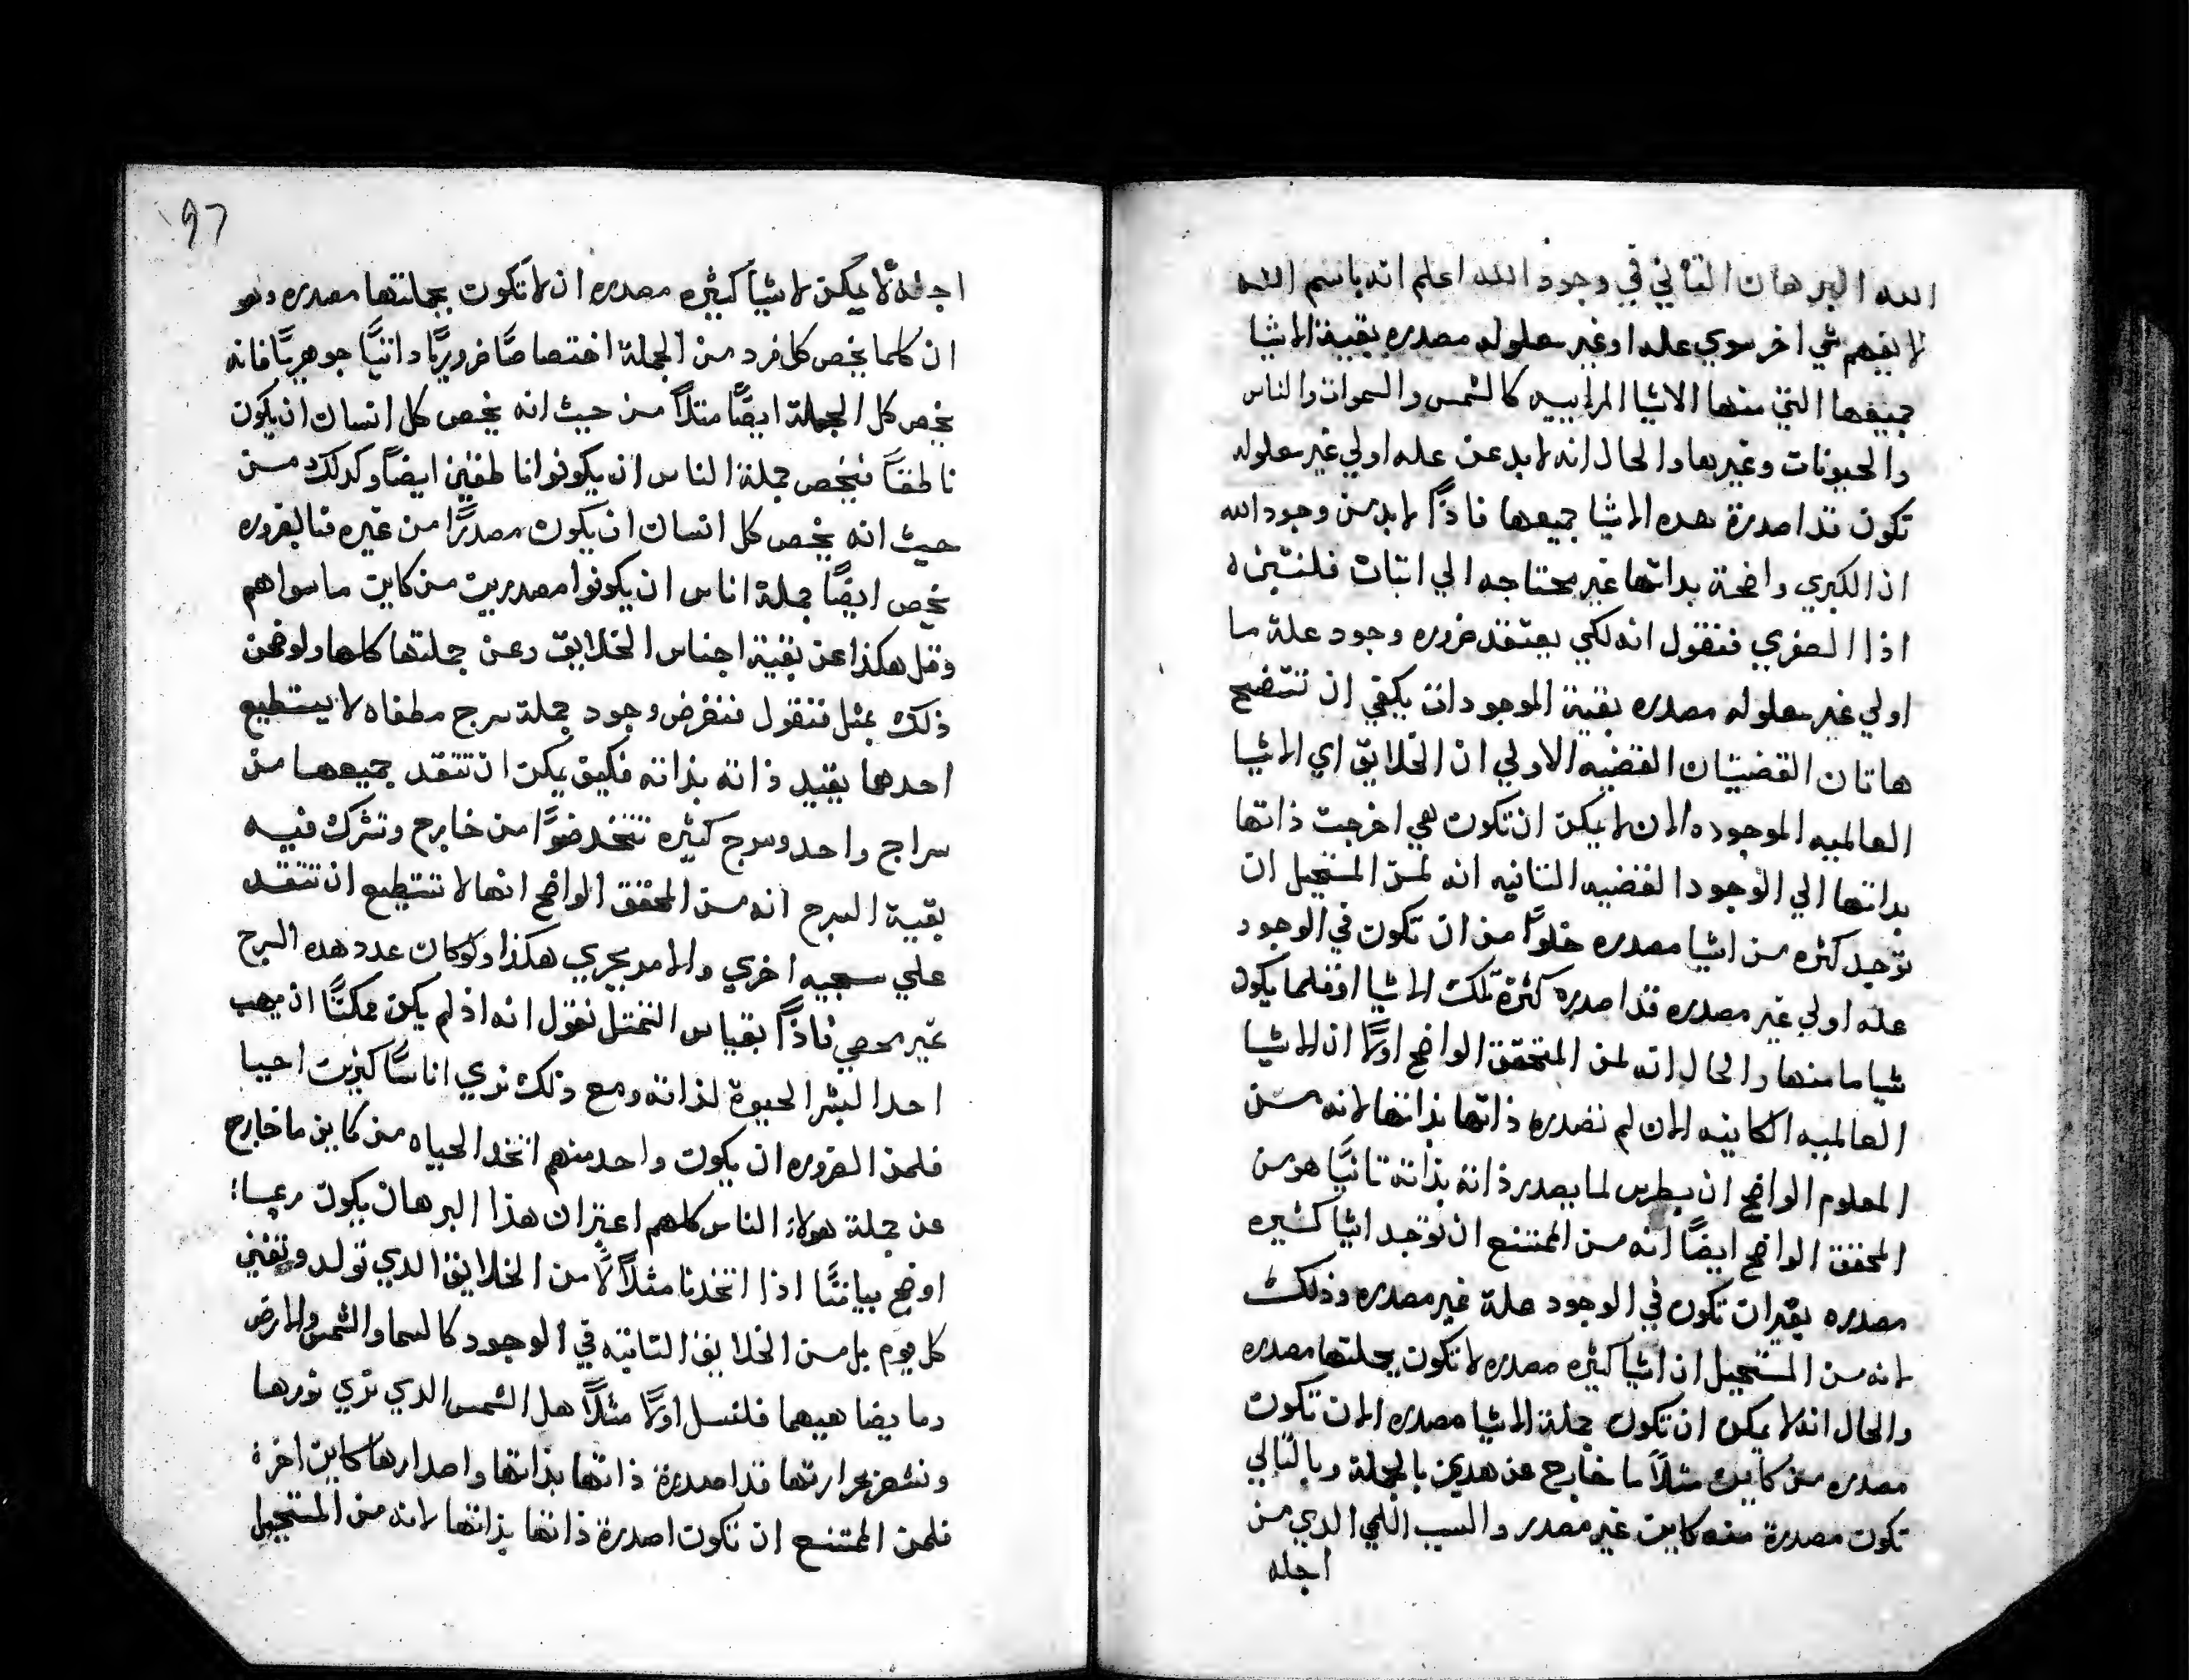 الله البرهان التاني في وجود الله اعلم انه باسم الله
لا يفهم شي اخر سوي عله اوغير معلوله مصدره بقية الاشيا
جميعها التي منها الاشيا المرابيه كالشمس والسموات والناس
والحيونات وغيرها والحال انه لابد عن عله اولي غير معلوله
تكون قد اصدرة هده الاشيا جميعها فاذًا لابد من وجود الله
اذ الكبري واضحة بداتها غير محتاجه الي اتبات فلنتبن ه
اذا الصغري فنقول انه لكي يعتقد ضروره وجود علة ما
اولي غير معلوله مصدره بقية الموجودات يكفي ان تتضح
هاتان القضيتان القضيه الاولي ان الخلايق اي الاشيا
العالميه الموجوده الان لا يمكن ان تكون هي اخرجت ذاتها
بداتها الي الوجود القضيه التانيه انه لمن المستحيل ان
توجد كتره من اشيا مصدره خلوًا من ان تكون في الوجود
عله اولي غير مصدره قد اصدره كثرة تلك الاشيا اوقلما يكون
شيا ما منها والحال انه لمن المتحقق الواضح اولًا ان الاشيا
العالميه الكاينه الان لم تصدره ذاتها بذاتها لانه من
المعلوم الواضح ان بطرس لما يصدر ذاته بذاته تانيًا هو من
المحقق الواضح ايضًا انه من الممتنع ان توجد اشيا كثيره
مصدره بغيران تكون في الوجود علة غير مصدره وذلك
لانه من المستحيل ان اشيا كثيره مصدره لا تكون بجملتها مصدره
والحال انه لا يمكن ان تكون جملة الاشيا مصدره الا ان تكون
مصدره من كاين مثلًا ما خارج عن هدين بالجملة وبالتالي
تكون مصدرة منه كاين غير مصدر والسبب اللمي الدي من
اجله
اجله لا يمكن لاشيا كثيره مصدره ان لا تكون بجملتها مصدره وهو
ان كلما يخص كل فرد من الجملة اختصاصًا ضروريًا داتيًا جوهريًا فانه
يخص كل الجملة ايضًا متلًا من حيث انه يخص كل انسان ان يكون
ناطقًا فيخص جملة الناس ان يكونوا ناطقين ايضًا وكدلك من
حيث انه يخص كل انسان ان يكون مصدرًا من غيره فبالضروره
يخص ايضًا جملة اناس ان يكونوا مصدرين من كاين ما سواهم
وقل هكذا عن بقية اجناس الخلايق وعن جملتها كلها ولوضحن
ذلك بمثل فنقول فنفرض وجود جملة سرج مطفاه لا يستطيع
احدها يقيد ذاته بذاته فكيف يمكن ان تتقد جميعها من
سراج واحد وسرج كثيره تتخد ضوًا من خارج وتشرك فيه
بقية السرج انه من المحقق الواضح انها لا تستطيع ان تتقد
علي سجيه اخري والامر يجري هكذا ولوكان عدد هده السرج
غير محصي فاذًا بقياس التمتل نقول انه اذ لم يكن ممكنًا ان يهب
احد البشر الحيوة لذاته ومع ذلك نري اناسًا كثيرين احيا
فلمن الضروره ان يكون واحد منهم اتخد الحياه من كاين ما خارج
عن جملة هولاء الناس كلهم اعتبر ان هذا البرهان يكون ربما
اوضح بياننًا اذا اتخدنا مثلًا لا من الخلايق الدي تولد وتفني
كل يوم بل من الخلايق التابته في الوجود كالسما والشمس والارض
وما يضاهيهما فلنسل اولًا مثلًا هل الشمس الدي نري نورها
ونشعر بحرارتها قد اصدرة ذاتها بذاتها واصدارها كاين اخر ه
فلمن الممتنع ان تكون اصدرة ذاتها بذاتها لانه من المستحيل